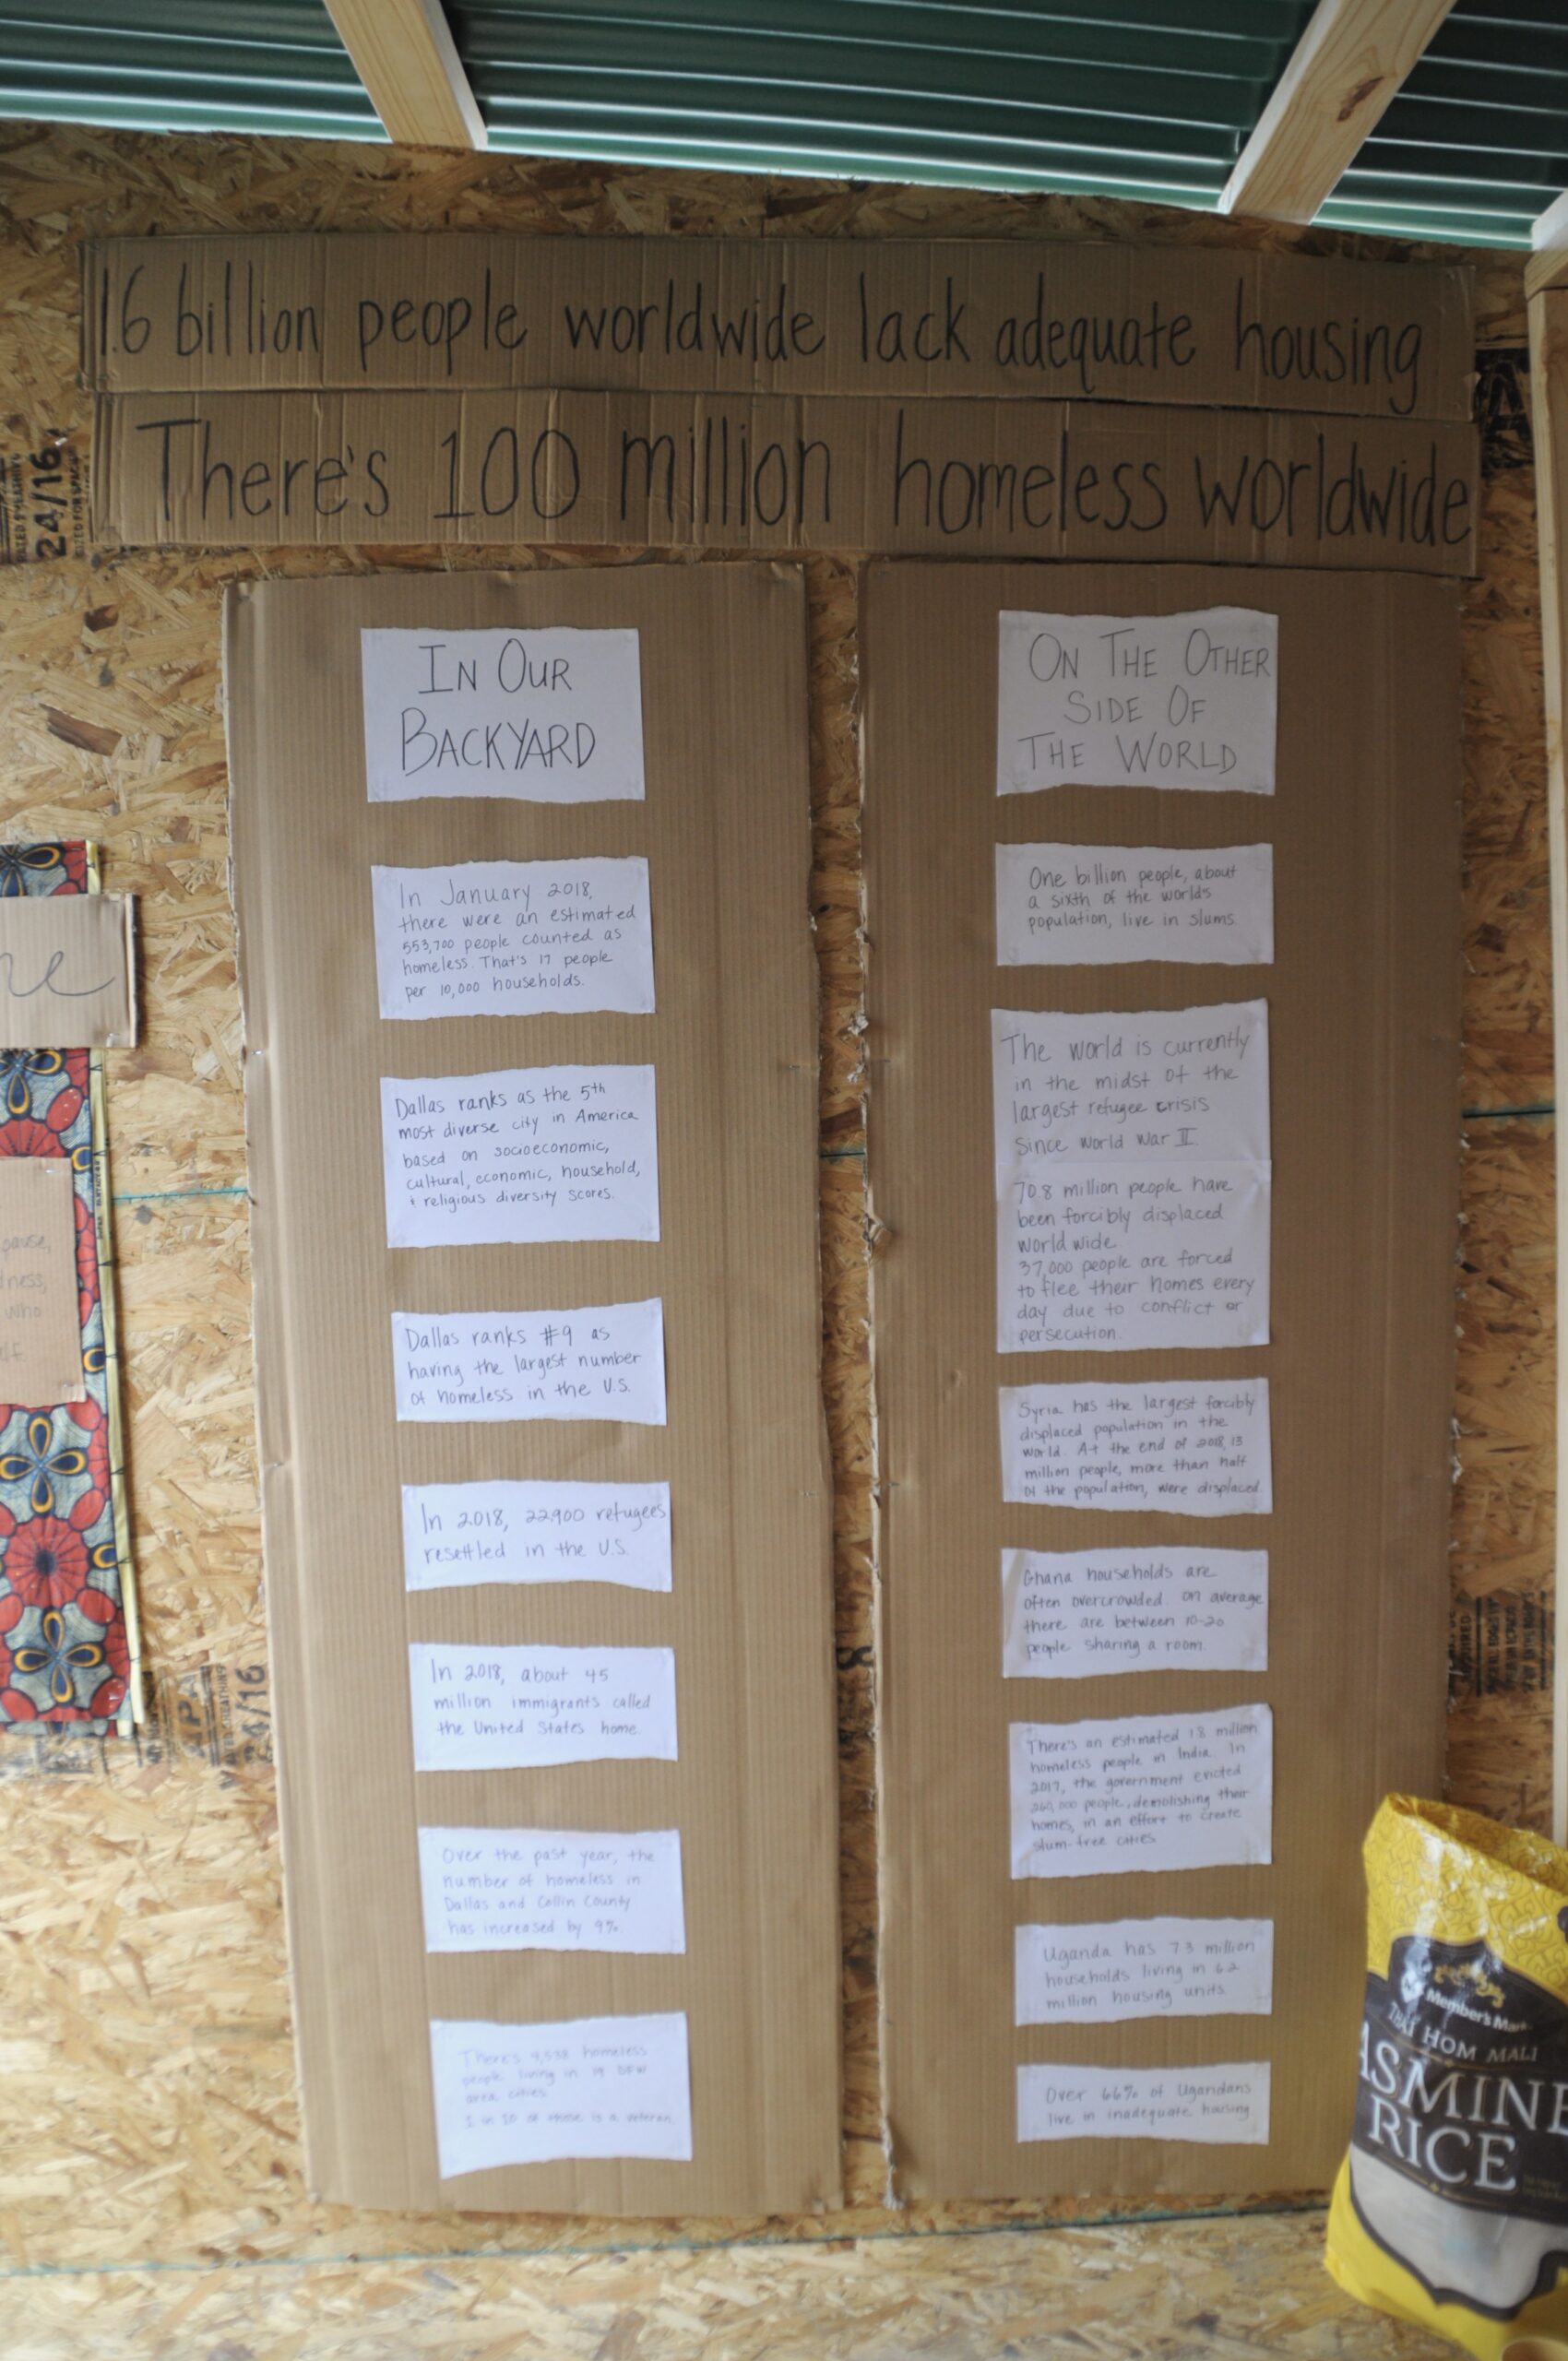 1.6 billion people worldwide lack adequate housing
There's 100 million homeless worldwide
IN OUR
BACKYARD
In January 2018,
there were an estimated
553,700 people counted as
homeless. That's 17 people
per 10,000 households.
Dallas ranks as the 5th
most diverse city in America
based on socioeconomic,
cultural, economic, household,
+ religious diversity scores.
Dallas ranks #9 as
having the largest number
of homeless in the U.S.
In 2018, 22,900 refugees
resettled in the U.S.
In 2018, about 45
million immigrants called
the United States home.
Over the past year, the
number of homeless in
Dallas and Collin County
has increased by 9%.
There's 4,538 homeless
people living in 19 DFW
area cities
1 in 10 of these is a veteran
ON THE OTHER
SIDE OF
THE WORLD
One billion people, about
a sixth of the world's
population, live in slums.
The world is currently
in the midst of the
largest refugee crisis
since world war II.
70.8 million people have
been forcibly displaced
world wide.
37,000 people are forced
to flee their homes every
day due to conflict or
persecution.
Syria has the largest forcibly
displaced population in the
world. At the end of 2018, 13
million people, more than half
of the population, were displaced.
Ghana households are
often overcrowded. on average
there are between 10-20
people sharing a room.
There's an estimated 1.8 million
homeless people in India. In
2017, the government evicted
260,000 people, demolishing their
homes, in an effort to create
slum-free cities
Uganda has 7.3 million
households living in 6.2
million housing units.
Over 66% of Ugandans
live in inadequate housing
24/16
pause,
who
24/16
Member's Mark
THAI HOM MALI
JASMINE
RICE